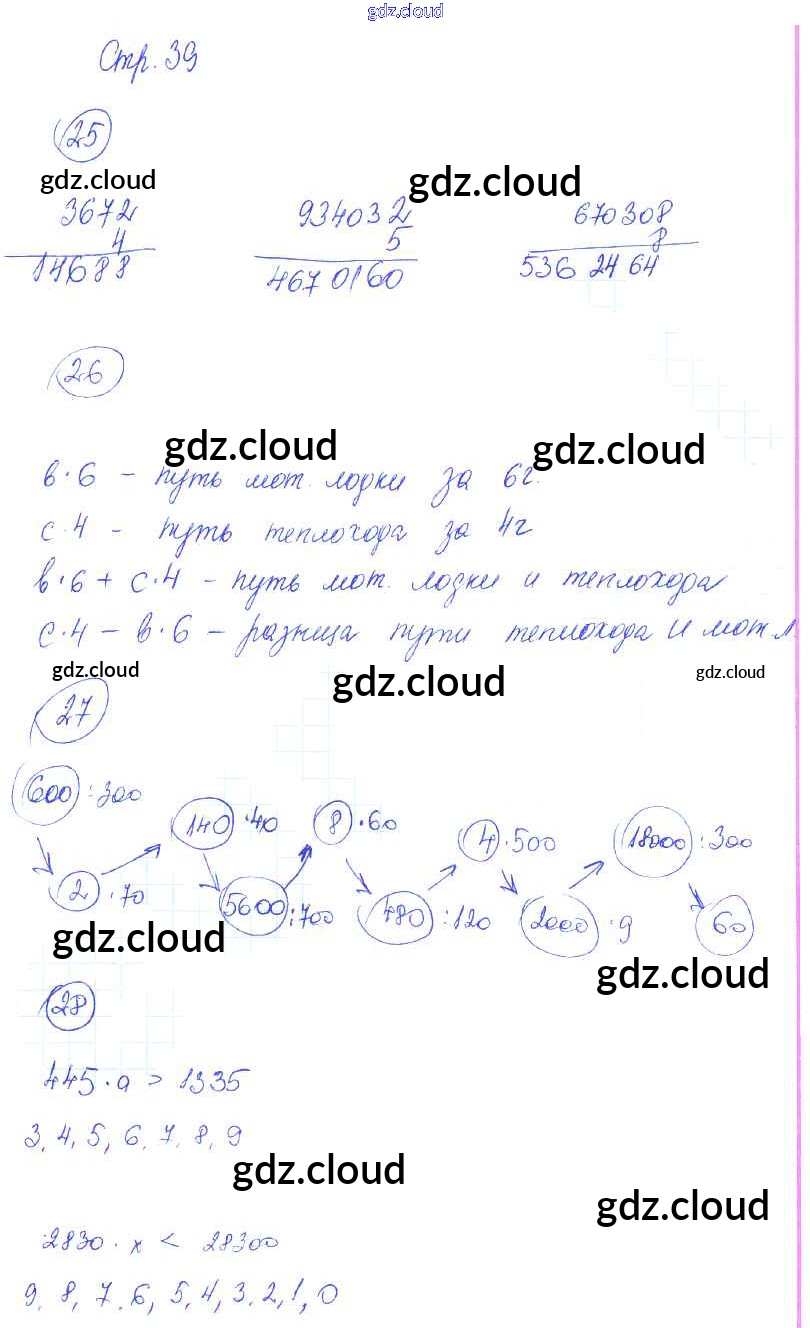 gdz.cloud
Стр. 39
25
gdz.cloud
gdz.cloud
3672 934032 670308
4 5 8
14688 4670160 5362464
26
gdz.cloud
gdz.cloud
в·6 - путь мот. лодки за 6г.
с·4 - путь теплохода за 4г
в·6 + с·4 - путь мот. лодки и теплохода
с·4 - в·6 - разница пути теплохода и мот л.
gdz.cloud
gdz.cloud
gdz.cloud
27
600 : 300 140 · 40 8 · 60 4 · 500 18000 : 300
2 · 70 5600 : 700 480 : 120 2000 · 9 60
gdz.cloud
gdz.cloud
28
445 · а > 1335
3, 4, 5, 6, 7, 8, 9
gdz.cloud
gdz.cloud
2830 · х < 28300
9, 8, 7, 6, 5, 4, 3, 2, 1, 0